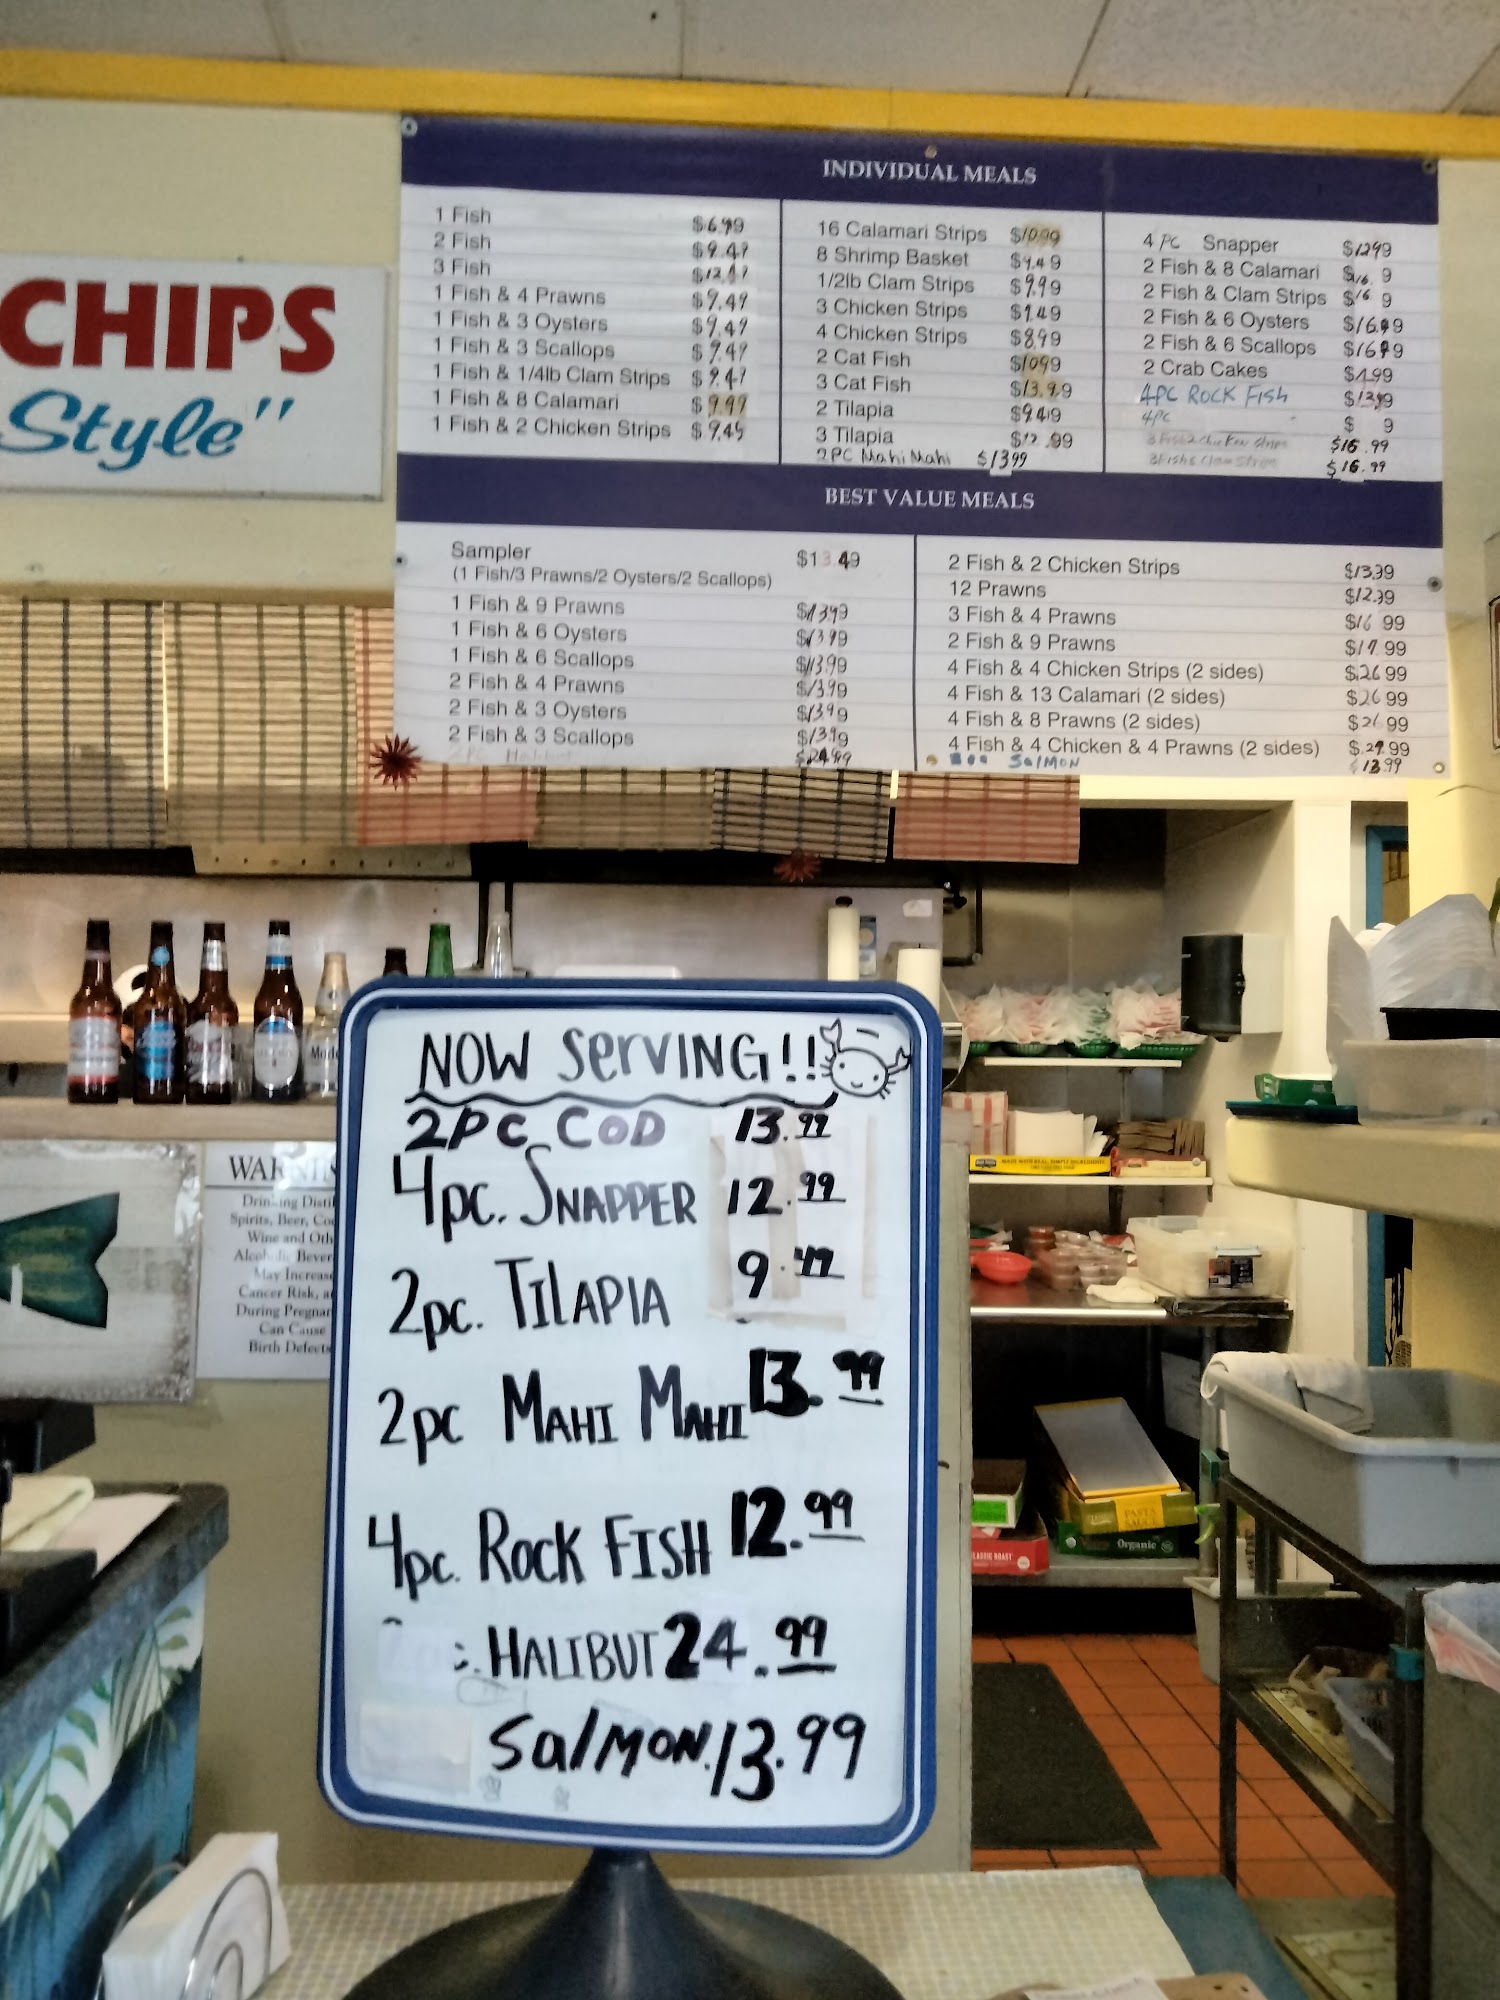 CHIPS
Style"
INDIVIDUAL MEALS
1 Fish $6.99
2 Fish $9.49
3 Fish
1 Fish & 4 Prawns $9.49
1 Fish & 3 Oysters $9.49
1 Fish & 3 Scallops $9.49
1 Fish & 1/4lb Clam Strips $9.49
1 Fish & 8 Calamari $9.99
1 Fish & 2 Chicken Strips $9.49
16 Calamari Strips $10.99
8 Shrimp Basket $9.49
1/2lb Clam Strips $9.99
3 Chicken Strips
4 Chicken Strips $8.99
2 Cat Fish $10.99
3 Cat Fish $13.99
2 Tilapia $9.49
3 Tilapia $12.99
2PC Mahi Mahi $13.99
4 PC Snapper $12.99
2 Fish & 8 Calamari
2 Fish & Clam Strips
2 Fish & 6 Oysters $16.99
2 Fish & 6 Scallops $16.99
2 Crab Cakes
4PC ROCK FISH
4PC
$16.99
$16.99
BEST VALUE MEALS
Sampler $13.49
(1 Fish/3 Prawns/2 Oysters/2 Scallops)
1 Fish & 9 Prawns $13.99
1 Fish & 6 Oysters $13.99
1 Fish & 6 Scallops $13.99
2 Fish & 4 Prawns $13.99
2 Fish & 3 Oysters $13.99
2 Fish & 3 Scallops $13.99
$24.99
2 Fish & 2 Chicken Strips $13.99
12 Prawns $12.99
3 Fish & 4 Prawns $16 99
2 Fish & 9 Prawns
4 Fish & 4 Chicken Strips (2 sides) $26 99
4 Fish & 13 Calamari (2 sides) $26 99
4 Fish & 8 Prawns (2 sides) $26 99
4 Fish & 4 Chicken & 4 Prawns (2 sides) $29.99
SalMON 13.99
NOW SERVING!!
2PC COD 13.99
4pc. SNAPPER 12.99
2pc. TILAPIA 9.49
2pc MAHI MAHI 13.99
4pc. ROCK FISH 12.99
HALIBUT 24.99
SalMON 13.99
Drinking Distil
Spirits, Beer, Coo
Wine and Oth
Alcoholic Bever
May Increase
Cancer Risk, a
During Pregnan
Can Cause
Birth Defects
PASTA
SAUCE
Organic
CLASSIC ROAST